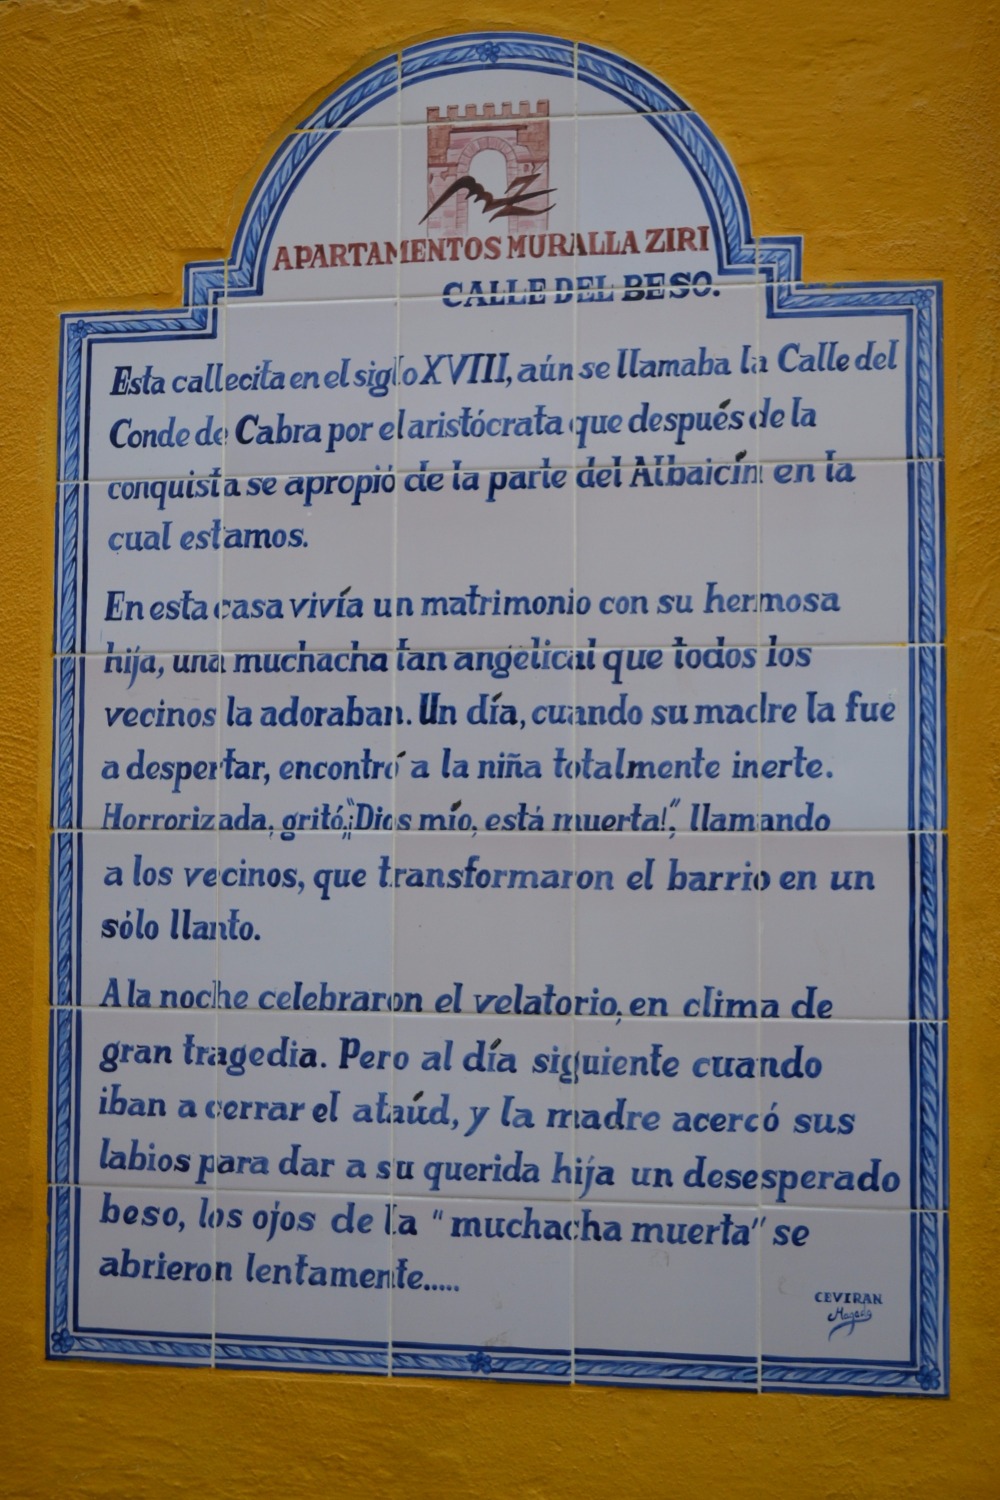 APARTAMENTOS MURALLA ZIRI
CALLE DEL BESO.
Esta callecita en el siglo XVIII, aún se llamaba la Calle del
Conde de Cabra por el aristócrata que después de la
conquista se apropió de la parte del Albaicín en la
cual estamos.
En esta casa vivía un matrimonio con su hermosa
hija, una muchacha tan angelical que todos los
vecinos la adoraban. Un día, cuando su madre la fue
a despertar, encontró a la niña totalmente inerte.
Horrorizada, gritó,"¡Dios mío, está muerta!", llamando
a los vecinos, que transformaron el barrio en un
sólo llanto.
A la noche celebraron el velatorio, en clima de
gran tragedia. Pero al día siguiente cuando
iban a cerrar el ataúd, y la madre acercó sus
labios para dar a su querida hija un desesperado
beso, los ojos de la "muchacha muerta" se
abrieron lentamente.....
CEVIRAN